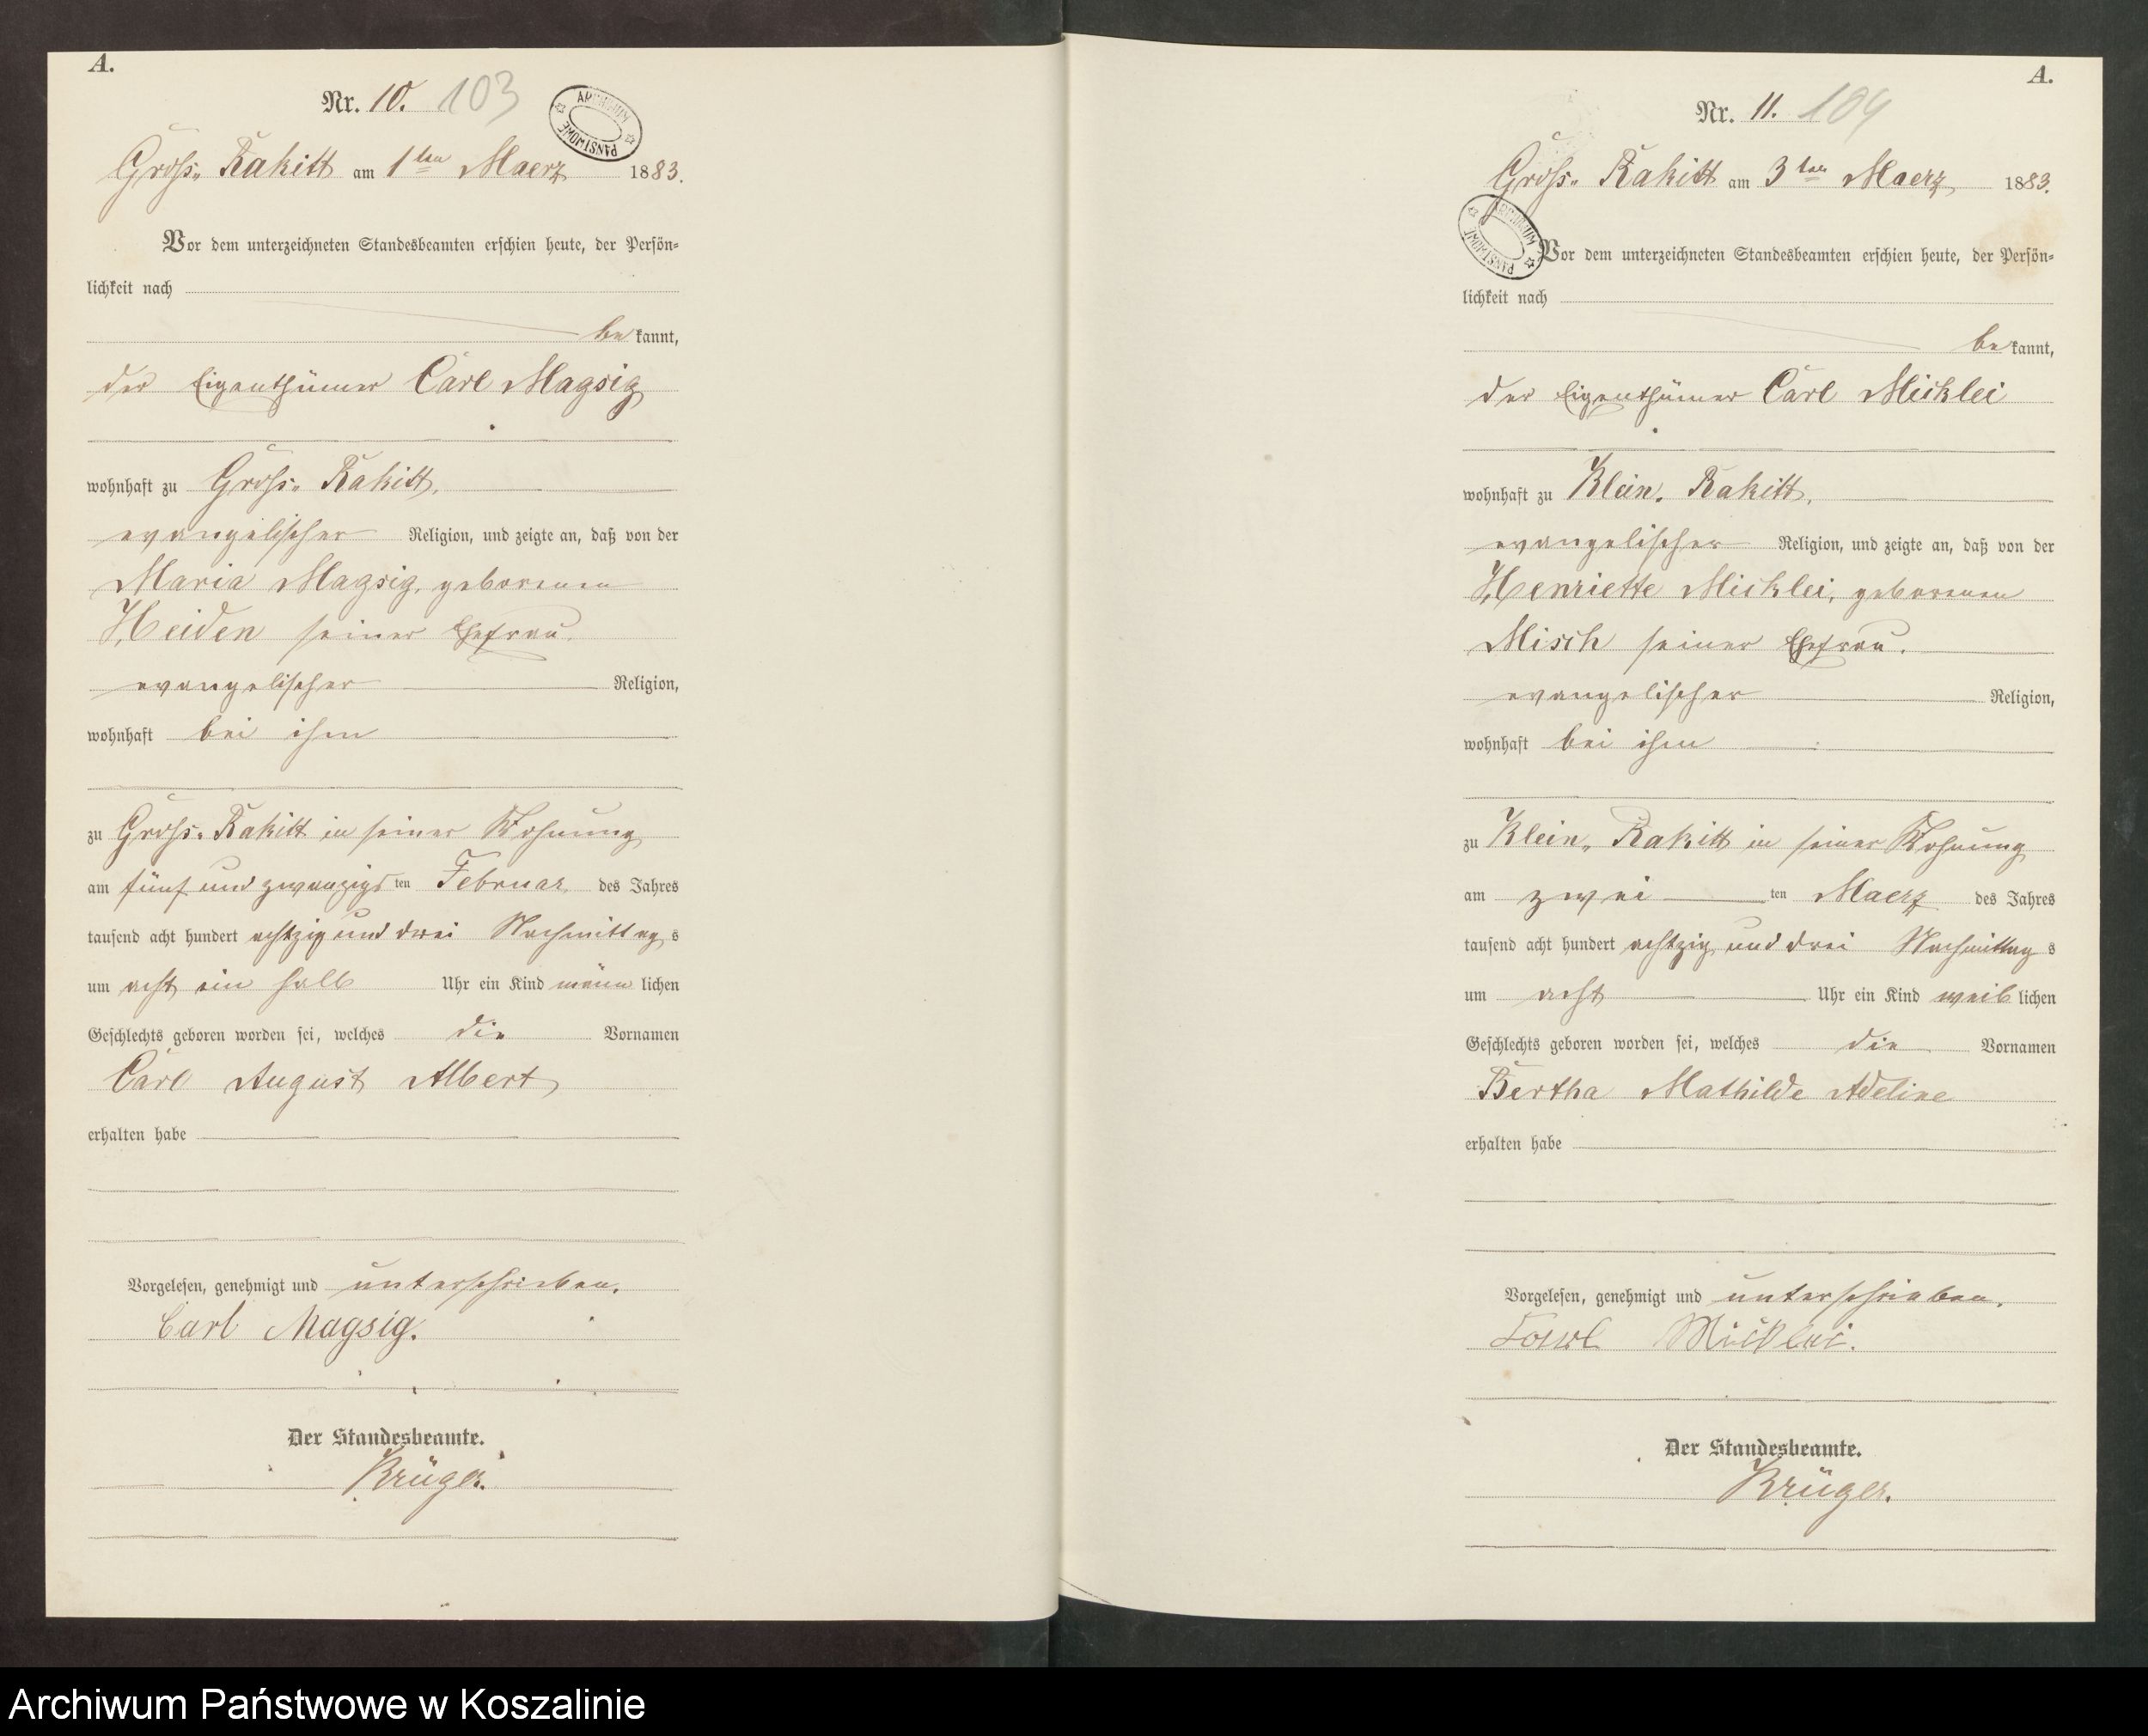 A.
Nr. 10. 103
ARCHIWUM PAŃSTWOWE
Gross. Rakitt am 1ten Maerz 1883.
Vor dem unterzeichneten Standesbeamten erschien heute, der Persön-
lichkeit nach
bekannt,
der Eigenthümer Carl Magsig
wohnhaft zu Gross. Rakitt,
evangelischer Religion, und zeigte an, daß von der
Maria Magsig, geborenen
Heiden seiner Ehefrau.
evangelischer Religion,
wohnhaft bei ihm
zu Gross. Rakitt in seiner Wohnung
am fünf und zwanzigsten Februar des Jahres
tausend acht hundert achtzig und drei Nachmittags
um acht ein halb Uhr ein Kind männlichen
Geschlechts geboren worden sei, welches die Vornamen
Carl August Albert
erhalten habe
Vorgelesen, genehmigt und unterschrieben.
Carl Magsig.
Der Standesbeamte.
Krüger.
A.
Nr. 11. 104
Gross. Rakitt am 3ten Maerz 1883.
ARCHIWUM PAŃSTWOWE
Vor dem unterzeichneten Standesbeamten erschien heute, der Persön-
lichkeit nach
bekannt,
der Eigenthümer Carl Micklei
wohnhaft zu Klein. Rakitt,
evangelischer Religion, und zeigte an, daß von der
Henriette Micklei, geborenen
Misch seiner Ehefrau.
evangelischer Religion,
wohnhaft bei ihm
zu Klein. Rakitt in seiner Wohnung
am zweiten Maerz des Jahres
tausend acht hundert achtzig und drei Nachmittags
um acht Uhr ein Kind weiblichen
Geschlechts geboren worden sei, welches die Vornamen
Bertha Mathilde Adeline
erhalten habe
Vorgelesen, genehmigt und unterschrieben.
Carl Micklei.
Der Standesbeamte.
Krüger.
Archiwum Państwowe w Koszalinie